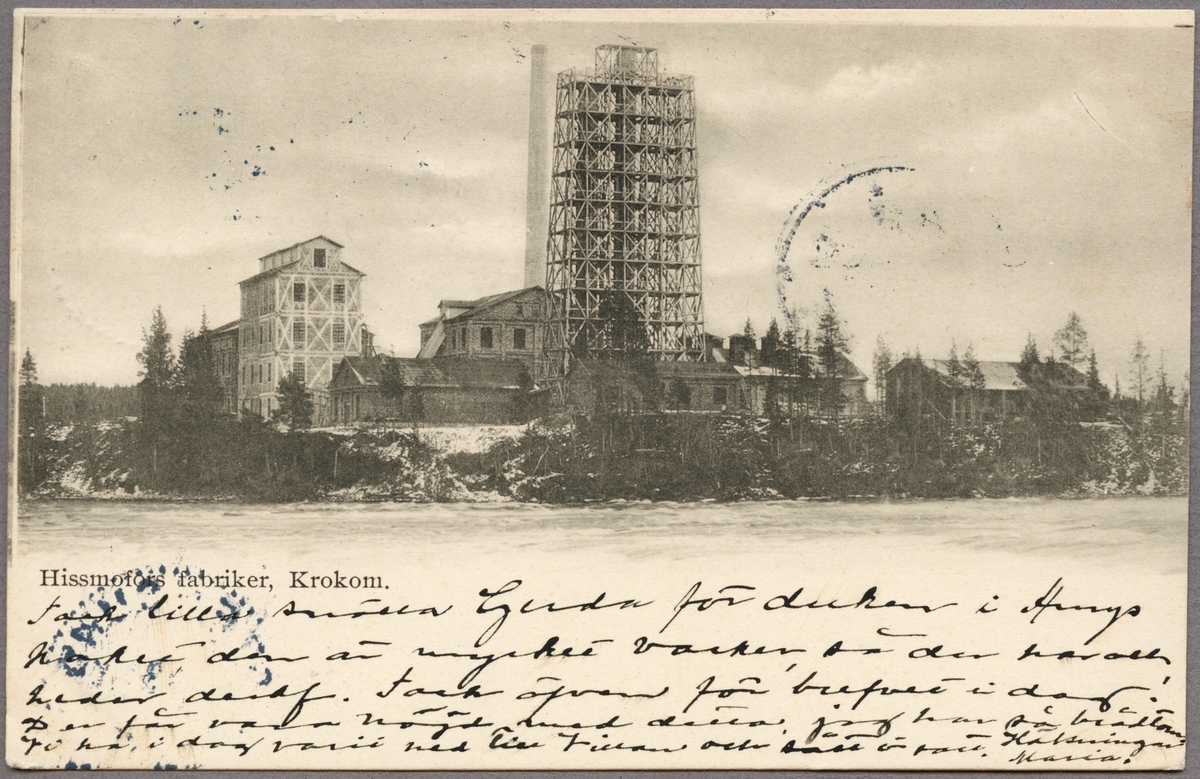 Hissmofors fabriker, Krokom.
Tack lilla snälla Gerda för duken i
den är mycket vacker, så du har all
heder deraf. Tack äfven för brefvet i dag.
Du får vara nöjd med detta, jag har så bråttom.
Vi ha i dag varit ned till och
Hälsningar
Maria.